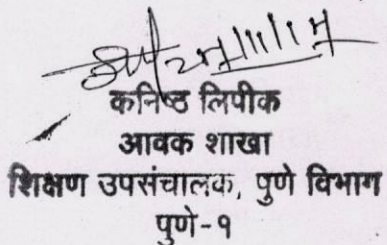 कनिष्ठ लिपीक
आवक शाखा
शिक्षण उपसंचालक, पुणे विभाग
पुणे-१